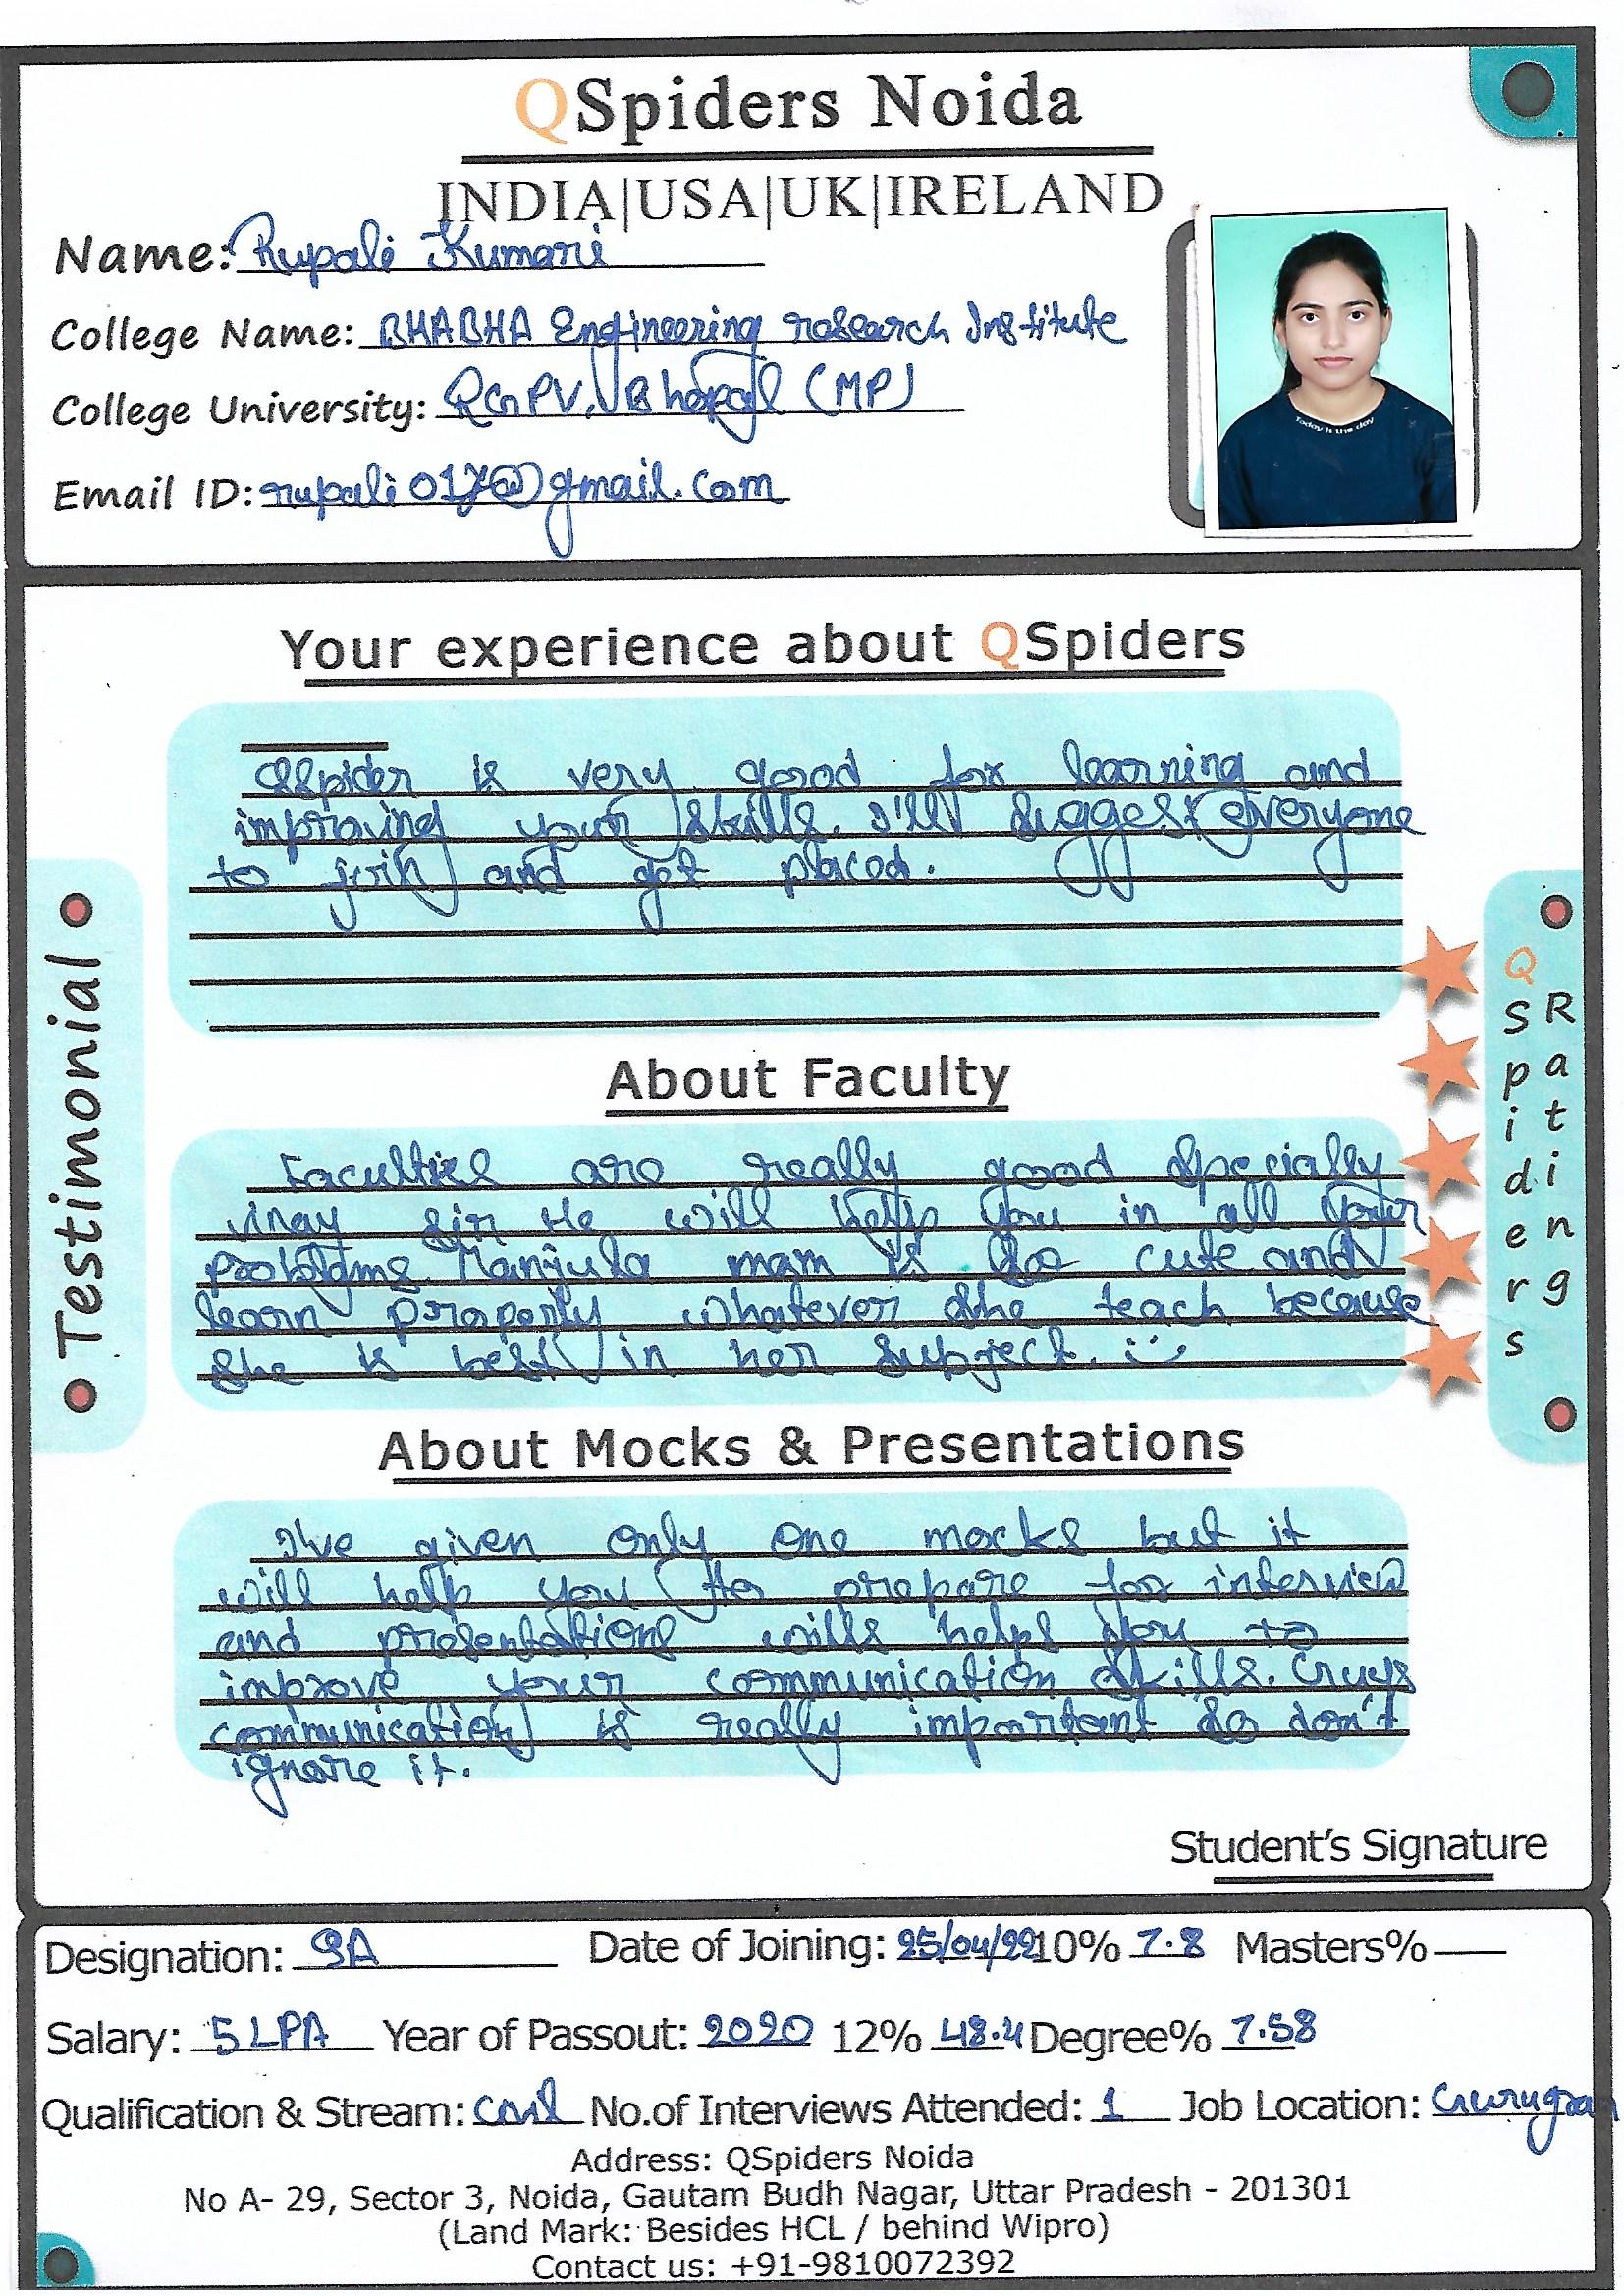 QSpiders Noida
INDIA|USA|UK|IRELAND
Name: Rupali Kumari
College Name: BHABHA Engineering research Institute
College University: RGPV, Bhopal (MP)
Email ID: rupali017@gmail.com
Today is the day
Your experience about QSpiders
QSpider is very good for learning and
improving your skills. I'll suggest everyone
to join and get placed.
About Faculty
Faculties are really good specially
vinay sir He will help you in all your
problems. Manjula mam is so cute and
learn properly whatever she teach because
she is best in her subject. :)
About Mocks & Presentations
I've given only one mocks but it
will help you to prepare for interview
and presentations wills helps you to
improve your communication skills. Guys
communication is really important so don't
ignore it.
Testimonial
QSpiders
Ratings
Student's Signature
Designation: SA Date of Joining: 25/04/22 10% 7.8 Masters% —
Salary: 5 LPA Year of Passout: 2020 12% 48.4 Degree% 7.58
Qualification & Stream: Civil No.of Interviews Attended: 1 Job Location: Gurugram
Address: QSpiders Noida
No A- 29, Sector 3, Noida, Gautam Budh Nagar, Uttar Pradesh - 201301
(Land Mark: Besides HCL / behind Wipro)
Contact us: +91-9810072392